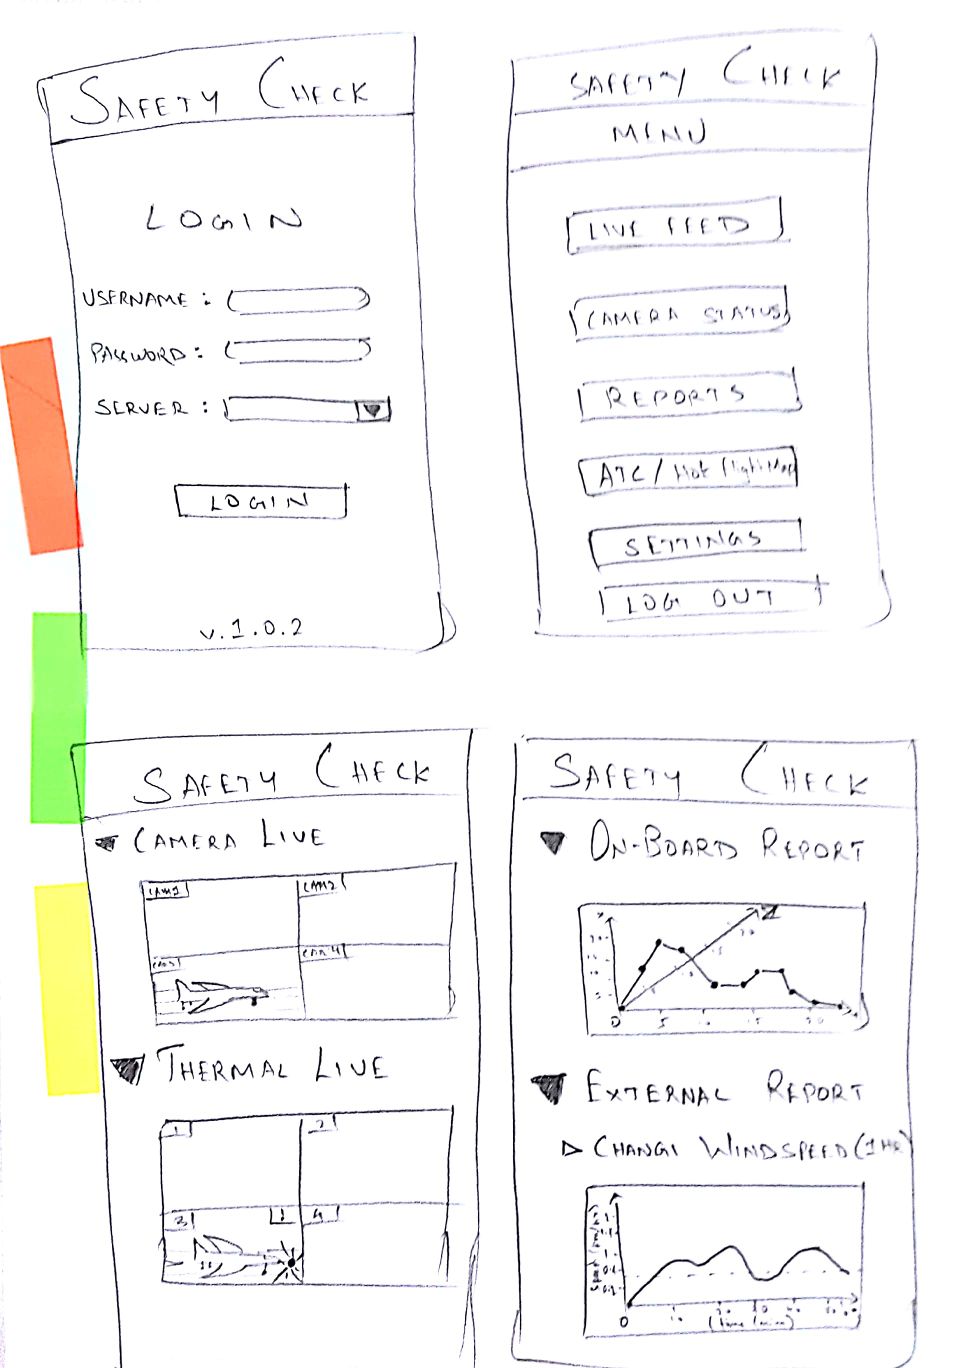 SAFETY CHECK
LOGIN
USERNAME :
PASSWORD :
SERVER :
LOGIN
v.1.0.2
SAFETY CHECK
MENU
LIVE FEED
CAMERA STATUS
REPORTS
ATC/
SETTINGS
LOG OUT
SAFETY CHECK
CAMERA LIVE
CAM1
CAM2
CAM4
THERMAL LIVE
1
2
3
4
SAFETY CHECK
ON-BOARD REPORT
0
5
15
EXTERNAL REPORT
CHANGI WINDSPEED (1HR)
0